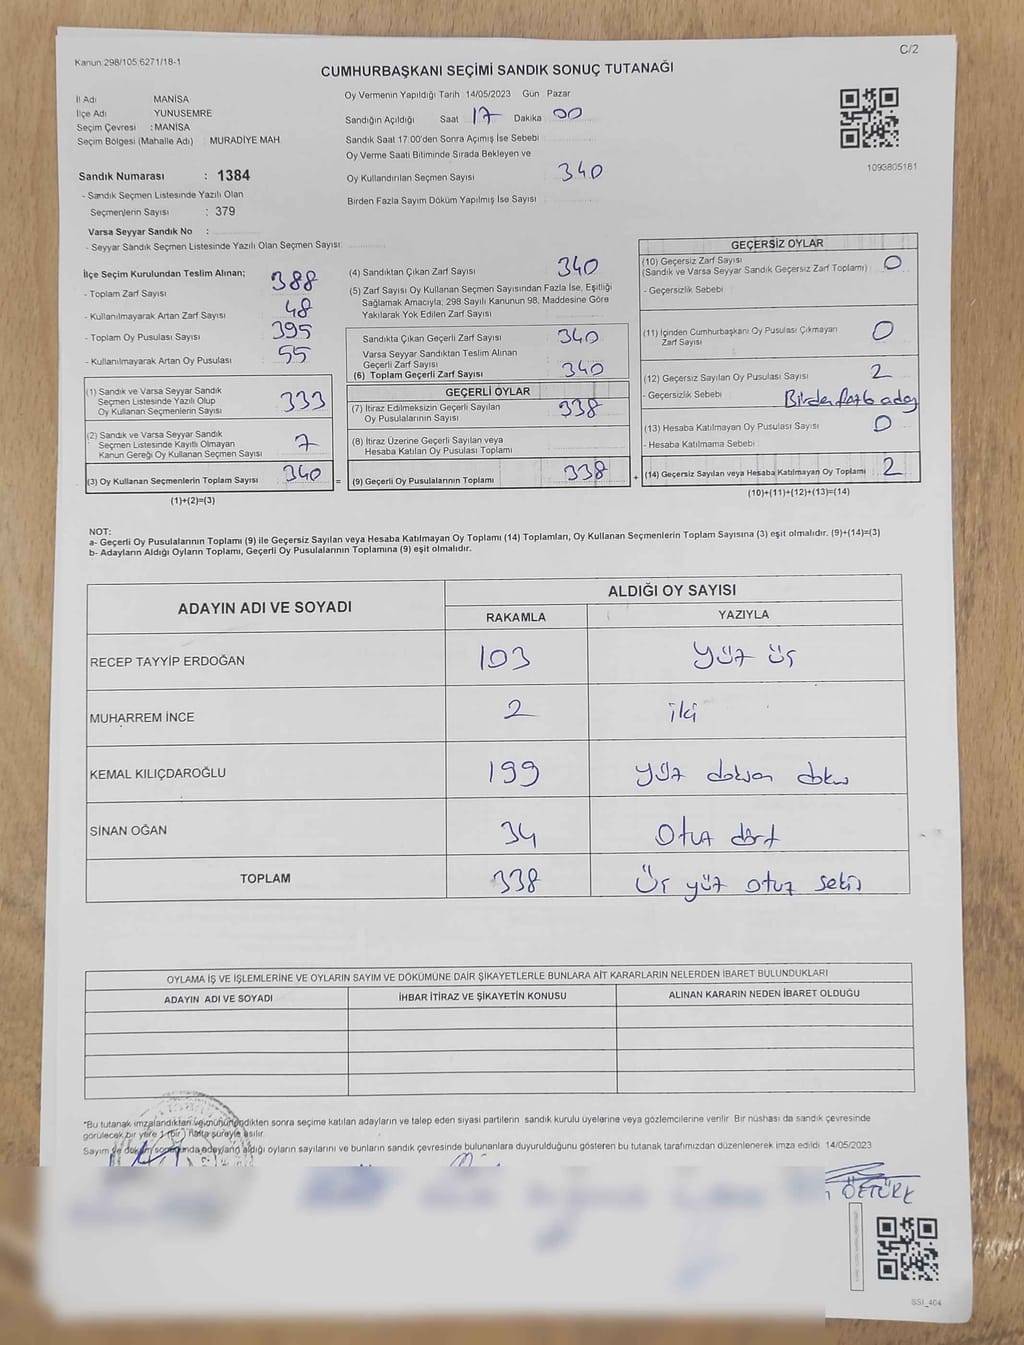 Kanun 298/105 6271/18-1
C/2
CUMHURBAŞKANI SEÇİMİ SANDIK SONUÇ TUTANAĞI
İl Adı MANİSA
İlçe Adı YUNUSEMRE
Seçim Çevresi : MANİSA
Seçim Bölgesi (Mahalle Adı) : MURADİYE MAH
Sandık Numarası : 1384
- Sandık Seçmen Listesinde Yazılı Olan
Seçmenlerin Sayısı : 379
Varsa Seyyar Sandık No :
- Seyyar Sandık Seçmen Listesinde Yazılı Olan Seçmen Sayısı:
Oy Vermenin Yapıldığı Tarih 14/05/2023 Gün Pazar
Sandığın Açıldığı Saat 17 Dakika 00
Sandık Saat 17:00'den Sonra Açımış İse Sebebi
Oy Verme Saati Bitiminde Sırada Bekleyen ve
Oy Kullandırılan Seçmen Sayısı 340
Birden Fazla Sayım Döküm Yapılmış İse Sayısı
1093805181
İlçe Seçim Kurulundan Teslim Alınan;
- Toplam Zarf Sayısı 388
- Kullanılmayarak Artan Zarf Sayısı 48
- Toplam Oy Pusulası Sayısı 395
- Kullanılmayarak Artan Oy Pusulası 55
(1) Sandık ve Varsa Seyyar Sandık
Seçmen Listesinde Yazılı Olup
Oy Kullanan Seçmenlerin Sayısı 333
(2) Sandık ve Varsa Seyyar Sandık
Seçmen Listesinde Kayıtlı Olmayan
Kanun Gereği Oy Kullanan Seçmen Sayısı 7
(3) Oy Kullanan Seçmenlerin Toplam Sayısı 340 =
(1)+(2)=(3)
(4) Sandıktan Çıkan Zarf Sayısı 340
(5) Zarf Sayısı Oy Kullanan Seçmen Sayısından Fazla İse, Eşitliği
Sağlamak Amacıyla; 298 Sayılı Kanunun 98. Maddesine Göre
Yakılarak Yok Edilen Zarf Sayısı
Sandıkta Çıkan Geçerli Zarf Sayısı 340
Varsa Seyyar Sandıktan Teslim Alınan
Geçerli Zarf Sayısı
(6) Toplam Geçerli Zarf Sayısı 340
GEÇERLİ OYLAR
(7) İtiraz Edilmeksizin Geçerli Sayılan
Oy Pusulalarının Sayısı 338
(8) İtiraz Üzerine Geçerli Sayılan veya
Hesaba Katılan Oy Pusulası Toplamı
(9) Geçerli Oy Pusulalarının Toplamı 338 +
GEÇERSİZ OYLAR
(10) Geçersiz Zarf Sayısı 0
(Sandık ve Varsa Seyyar Sandık Geçersiz Zarf Toplamı)
- Geçersizlik Sebebi
(11) İçinden Cumhurbaşkanı Oy Pusulası Çıkmayan
Zarf Sayısı 0
(12) Geçersiz Sayılan Oy Pusulası Sayısı 2
- Geçersizlik Sebebi Birden fazla aday
(13) Hesaba Katılmayan Oy Pusulası Sayısı 0
- Hesaba Katılmama Sebebi
(14) Geçersiz Sayılan veya Hesaba Katılmayan Oy Toplamı 2
(10)+(11)+(12)+(13)=(14)
NOT:
a- Geçerli Oy Pusulalarının Toplamı (9) ile Geçersiz Sayılan veya Hesaba Katılmayan Oy Toplamı (14) Toplamları, Oy Kullanan Seçmenlerin Toplam Sayısına (3) eşit olmalıdır. (9)+(14)=(3)
b- Adayların Aldığı Oyların Toplamı, Geçerli Oy Pusulalarının Toplamına (9) eşit olmalıdır.
ADAYIN ADI VE SOYADI
ALDIĞI OY SAYISI
RAKAMLA YAZIYLA
RECEP TAYYİP ERDOĞAN 103 Yüz üç
MUHARREM İNCE 2 iki
KEMAL KILIÇDAROĞLU 199 yüz doksan dokuz
SİNAN OĞAN 34 Otuz dört
TOPLAM 338 Üç yüz otuz sekiz
OYLAMA İŞ VE İŞLEMLERİNE VE OYLARIN SAYIM VE DÖKÜMÜNE DAİR ŞİKAYETLERLE BUNLARA AİT KARARLARIN NELERDEN İBARET BULUNDUKLARI
ADAYIN ADI VE SOYADI İHBAR İTİRAZ VE ŞİKAYETİN KONUSU ALINAN KARARIN NEDEN İBARET OLDUĞU
*Bu tutanak imzalandıktan ve mühürlendikten sonra seçime katılan adayların ve talep eden siyasi partilerin sandık kurulu üyelerine veya gözlemcilerine verilir Bir nüshası da sandık çevresinde
görülecek bir yere 1 (bir) hafta süreyle asılır.
Sayım ve döküm sonucunda adayların aldığı oyların sayılarını ve bunların sandık çevresinde bulunanlara duyurulduğunu gösteren bu tutanak tarafımızdan düzenlenerek imza edildi 14/05/2023
ÖZTÜRK
SSI_404